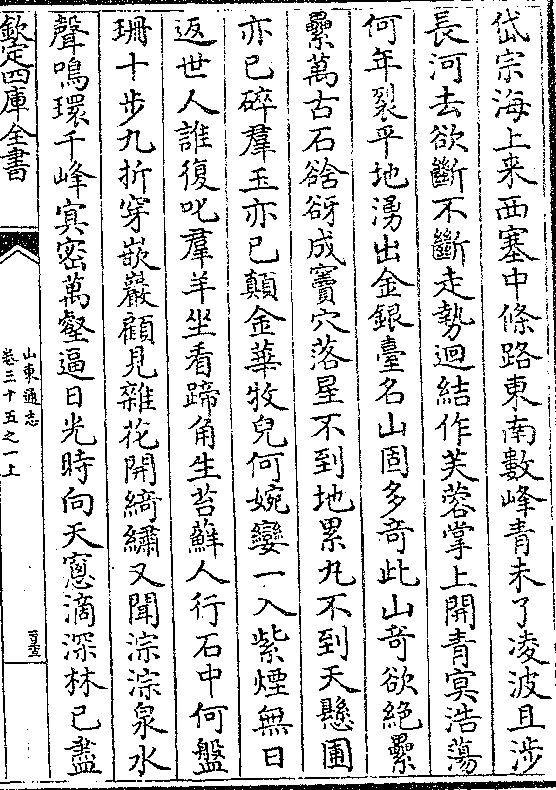 岱宗海上来西塞中條路東南數峰青未了凌波且涉
長河去欲斷不斷走勢迴結作芙蓉掌上開青㝠浩蕩
何年裂平地湧出金銀臺名山固多竒此山竒欲絶纍
纍萬古石谽谺成竇穴落星不到地累丸不到天懸圃
亦已碎羣玉亦已顛金華牧兒何婉孌一入紫煙無日
返世人誰復叱羣羊坐看蹄角生苔蘚人行石中何盤
珊十步九折穿嵌巖顧見雜花開綺繡又聞淙淙泉水
聲鳴環千峰㝠密萬壑逼日光時向天窻滴深林已盡
欽定四庫全書
山東通志
卷三十五之一上